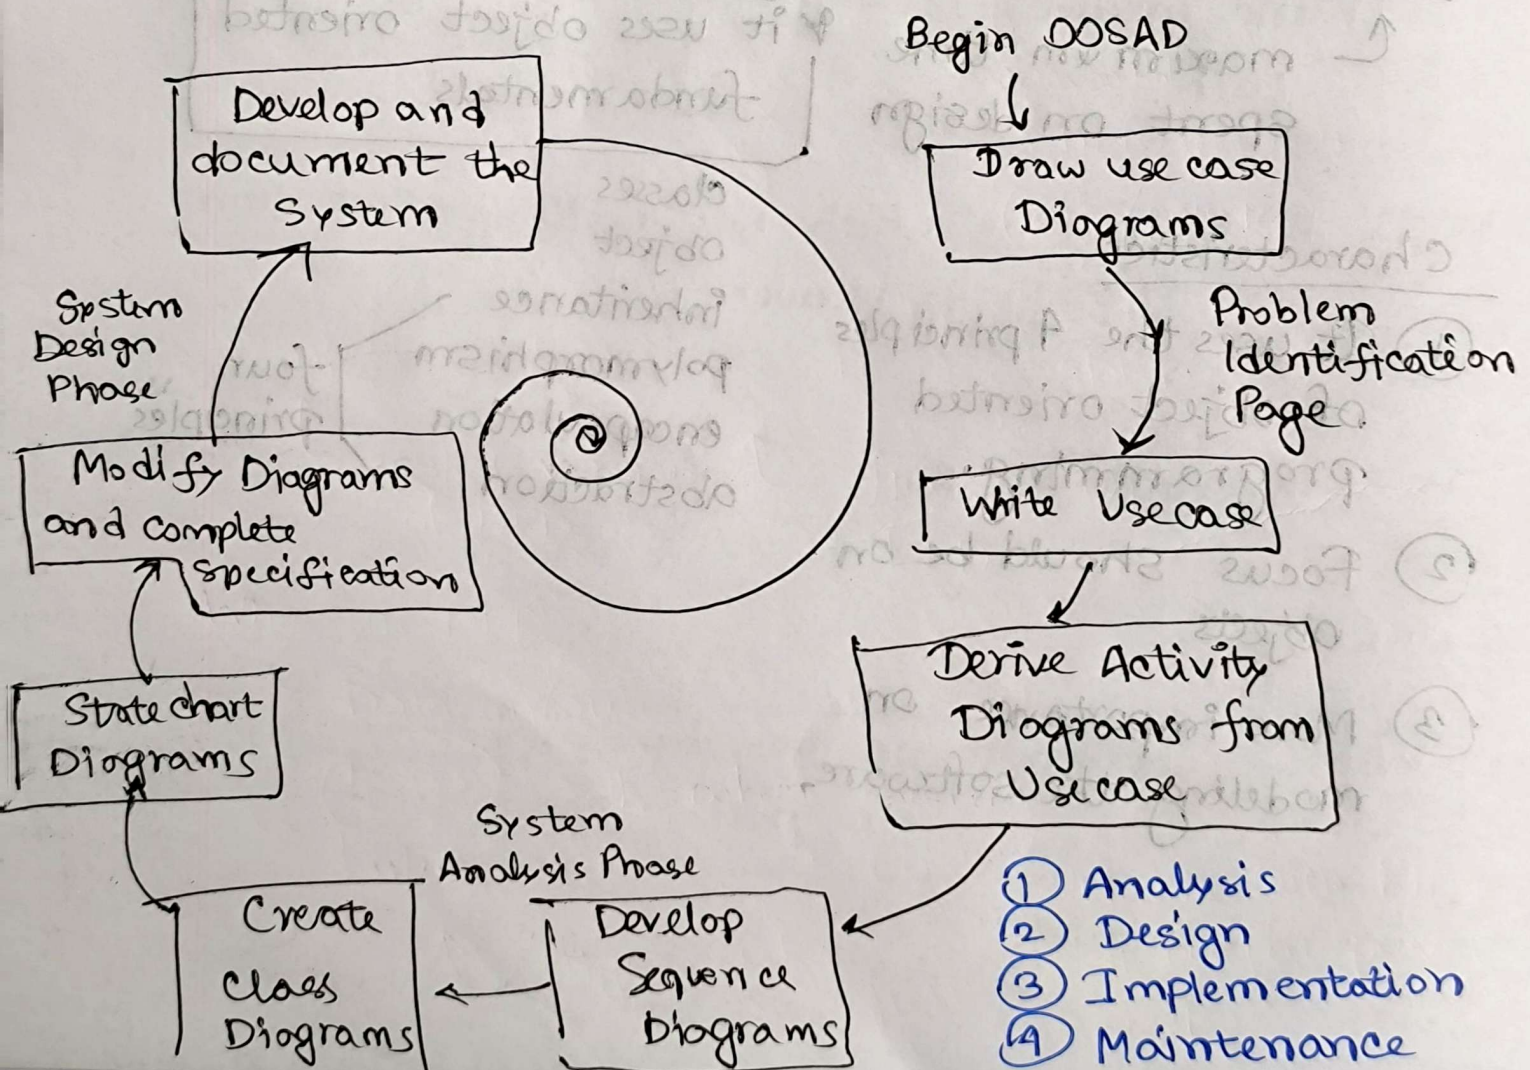 Begin OOSAD
Draw use case
Diagrams
Problem
Identification
Page
Write Usecase
Derive Activity
Diagrams from
Usecase
Develop
Sequence
Diagrams
System
Analysis Phase
Create
Class
Diagrams
State chart
Diagrams
Modify Diagrams
and complete
specification
System
Design
Phase
Develop and
document the
System
① Analysis
② Design
③ Implementation
④ Maintenance